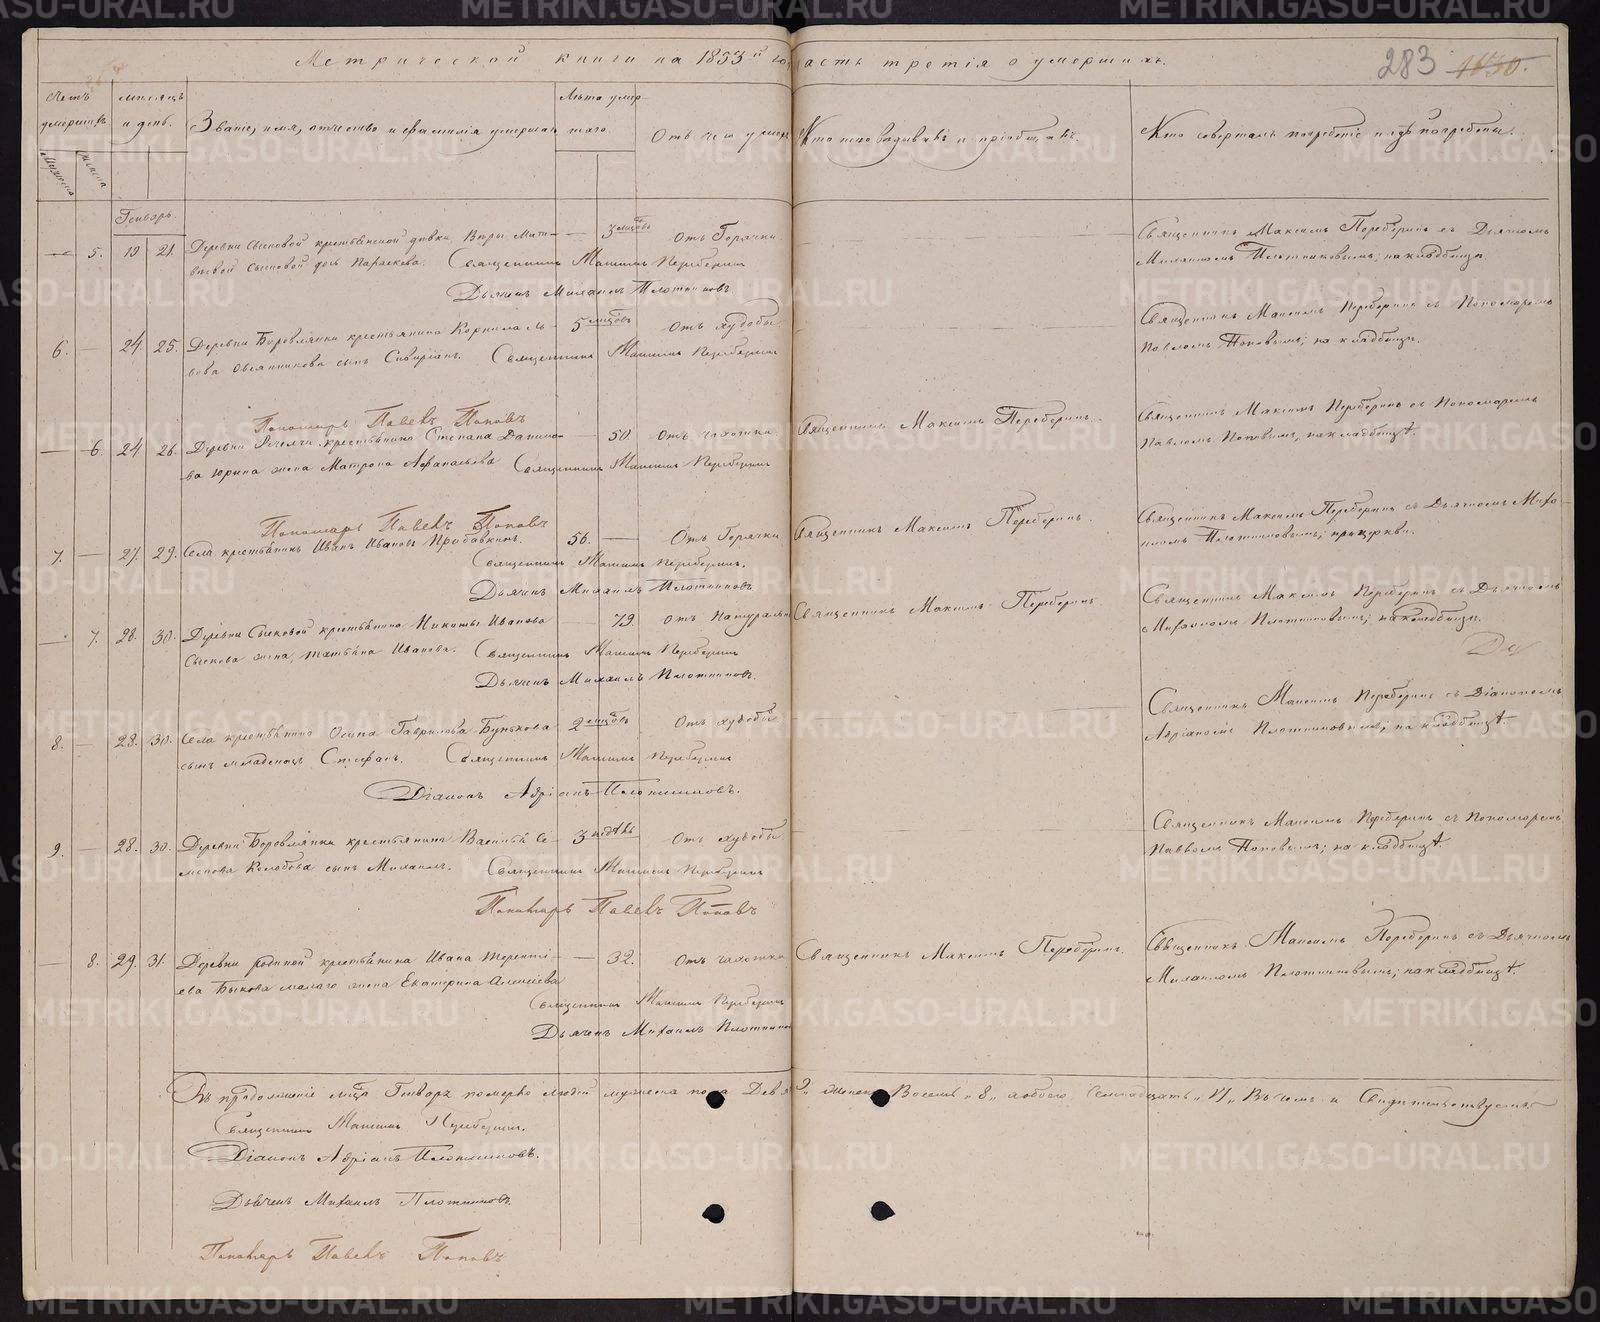 Метрической книги на 1853й го
часть третія о умершихъ.
283 1850.
Мѣсяцъ
и день.
Званіе, имя, отчество и фамилія умершаго.
Лѣта умер-
шаго.
Отъ чего умеръ
Кто исповѣдывалъ и пріобщалъ.
Кто совершалъ погребеніе и гдѣ погребены.
Генварь.
5. 19 21. Деревни Сысковой крестьянской дѣвки Вѣры Мат- — 3 мѣсцовъ Отъ Горячки
Сысковой дочь Параскева. Священникъ Максимъ Переберинъ
Дьячекъ Михаилъ Плотниковъ.
Священникъ Максимъ Переберинъ съ Дьячкомъ
Михаиломъ Плотниковымъ; на кладбищѣ.
6. — 24. 25. Деревни Боровлянки крестьянина Корнила Ль- 5 мѣсцовъ Отъ худобы
вова Овсянникова сынъ Сивиріанъ. Священникъ Максимъ Переберинъ
Пономарь Павелъ Поповъ
Священникъ Максимъ Переберинъ съ Пономаремъ
Павломъ Поповымъ; на кладбищѣ.
— 6. 24 26. Деревни крестьянина Степана Данило- — 50. Отъ чахотки
ва Юрина жена Матрона Афанасьева Священникъ Максимъ Переберинъ
Пономарь Павелъ Поповъ
Священникъ Максимъ Переберинъ.
Священникъ Максимъ Переберинъ съ Пономаремъ
Павломъ Поповымъ, на кладбищѣ.
7. — 27. 29. Села крестьянинъ Иванъ Ивановъ Прибавкинъ. 56. — Отъ Горячки
Священникъ Максимъ Переберинъ.
Дьячекъ Михаилъ Плотниковъ
Священникъ Максимъ Переберинъ.
Священникъ Максимъ Переберинъ съ Дьячкомъ Миха-
иломъ Плотниковымъ; при церкви.
— 7. 28. 30. Деревни Сысковой крестьянина Никиты Иванова — 79. Отъ Натуральн
Сыскова жена, Татьяна Иванова. Священникъ Максимъ Переберинъ
Дьячекъ Михаилъ Плотниковъ.
Священникъ Максимъ Переберинъ
Священникъ Максимъ Переберинъ съ Дьячкомъ
Михаиломъ Плотниковымъ; на кладбищѣ.
8. — 28. 30. Села крестьянина Осипа Гаврилова Бунькова 2 мѣсцовъ Отъ худобы
сынъ младенецъ Стефанъ. Священникъ Максимъ Переберинъ
Діаконъ Адріанъ Плотниковъ.
Священникъ Максимъ Переберинъ съ Діакономъ
Адріаномъ Плотниковымъ; на кладбищѣ.
9. — 28. 30. Деревни Боровлянки крестьянина Василья Се- 3 недѣль Отъ худобы
менова Колобова сынъ Михаилъ. Священникъ Максимъ Переберинъ
Пономарь Павелъ Поповъ
Священникъ Максимъ Переберинъ съ Пономаремъ
Павломъ Поповымъ; на кладбищѣ.
— 8. 29. 31. Деревни Родиной крестьянина Ивана Терентi- — 32. Отъ чахотки
ева Быкова малаго жена Екатерина Алексѣева
Священникъ Максимъ Переберинъ
Дьячекъ Михаилъ Плотник
Священникъ Максимъ Переберинъ.
Священникъ Максимъ Переберинъ съ Дьячкомъ
Михаиломъ Плотниковымъ; на кладбищѣ.
Въ продолженіе мѣсца Генваря померло людей мужеска пола Девя 9, женска Восемь „8„ обоего Семнадцать „17„ Въ чемъ и Свидѣтельствуемъ
Священникъ Максимъ Переберинъ.
Діаконъ Адріанъ Плотниковъ.
Дьячекъ Михаилъ Плотниковъ.
Пономарь Павелъ Поповъ
METRIKI.GASO-URAL.RU